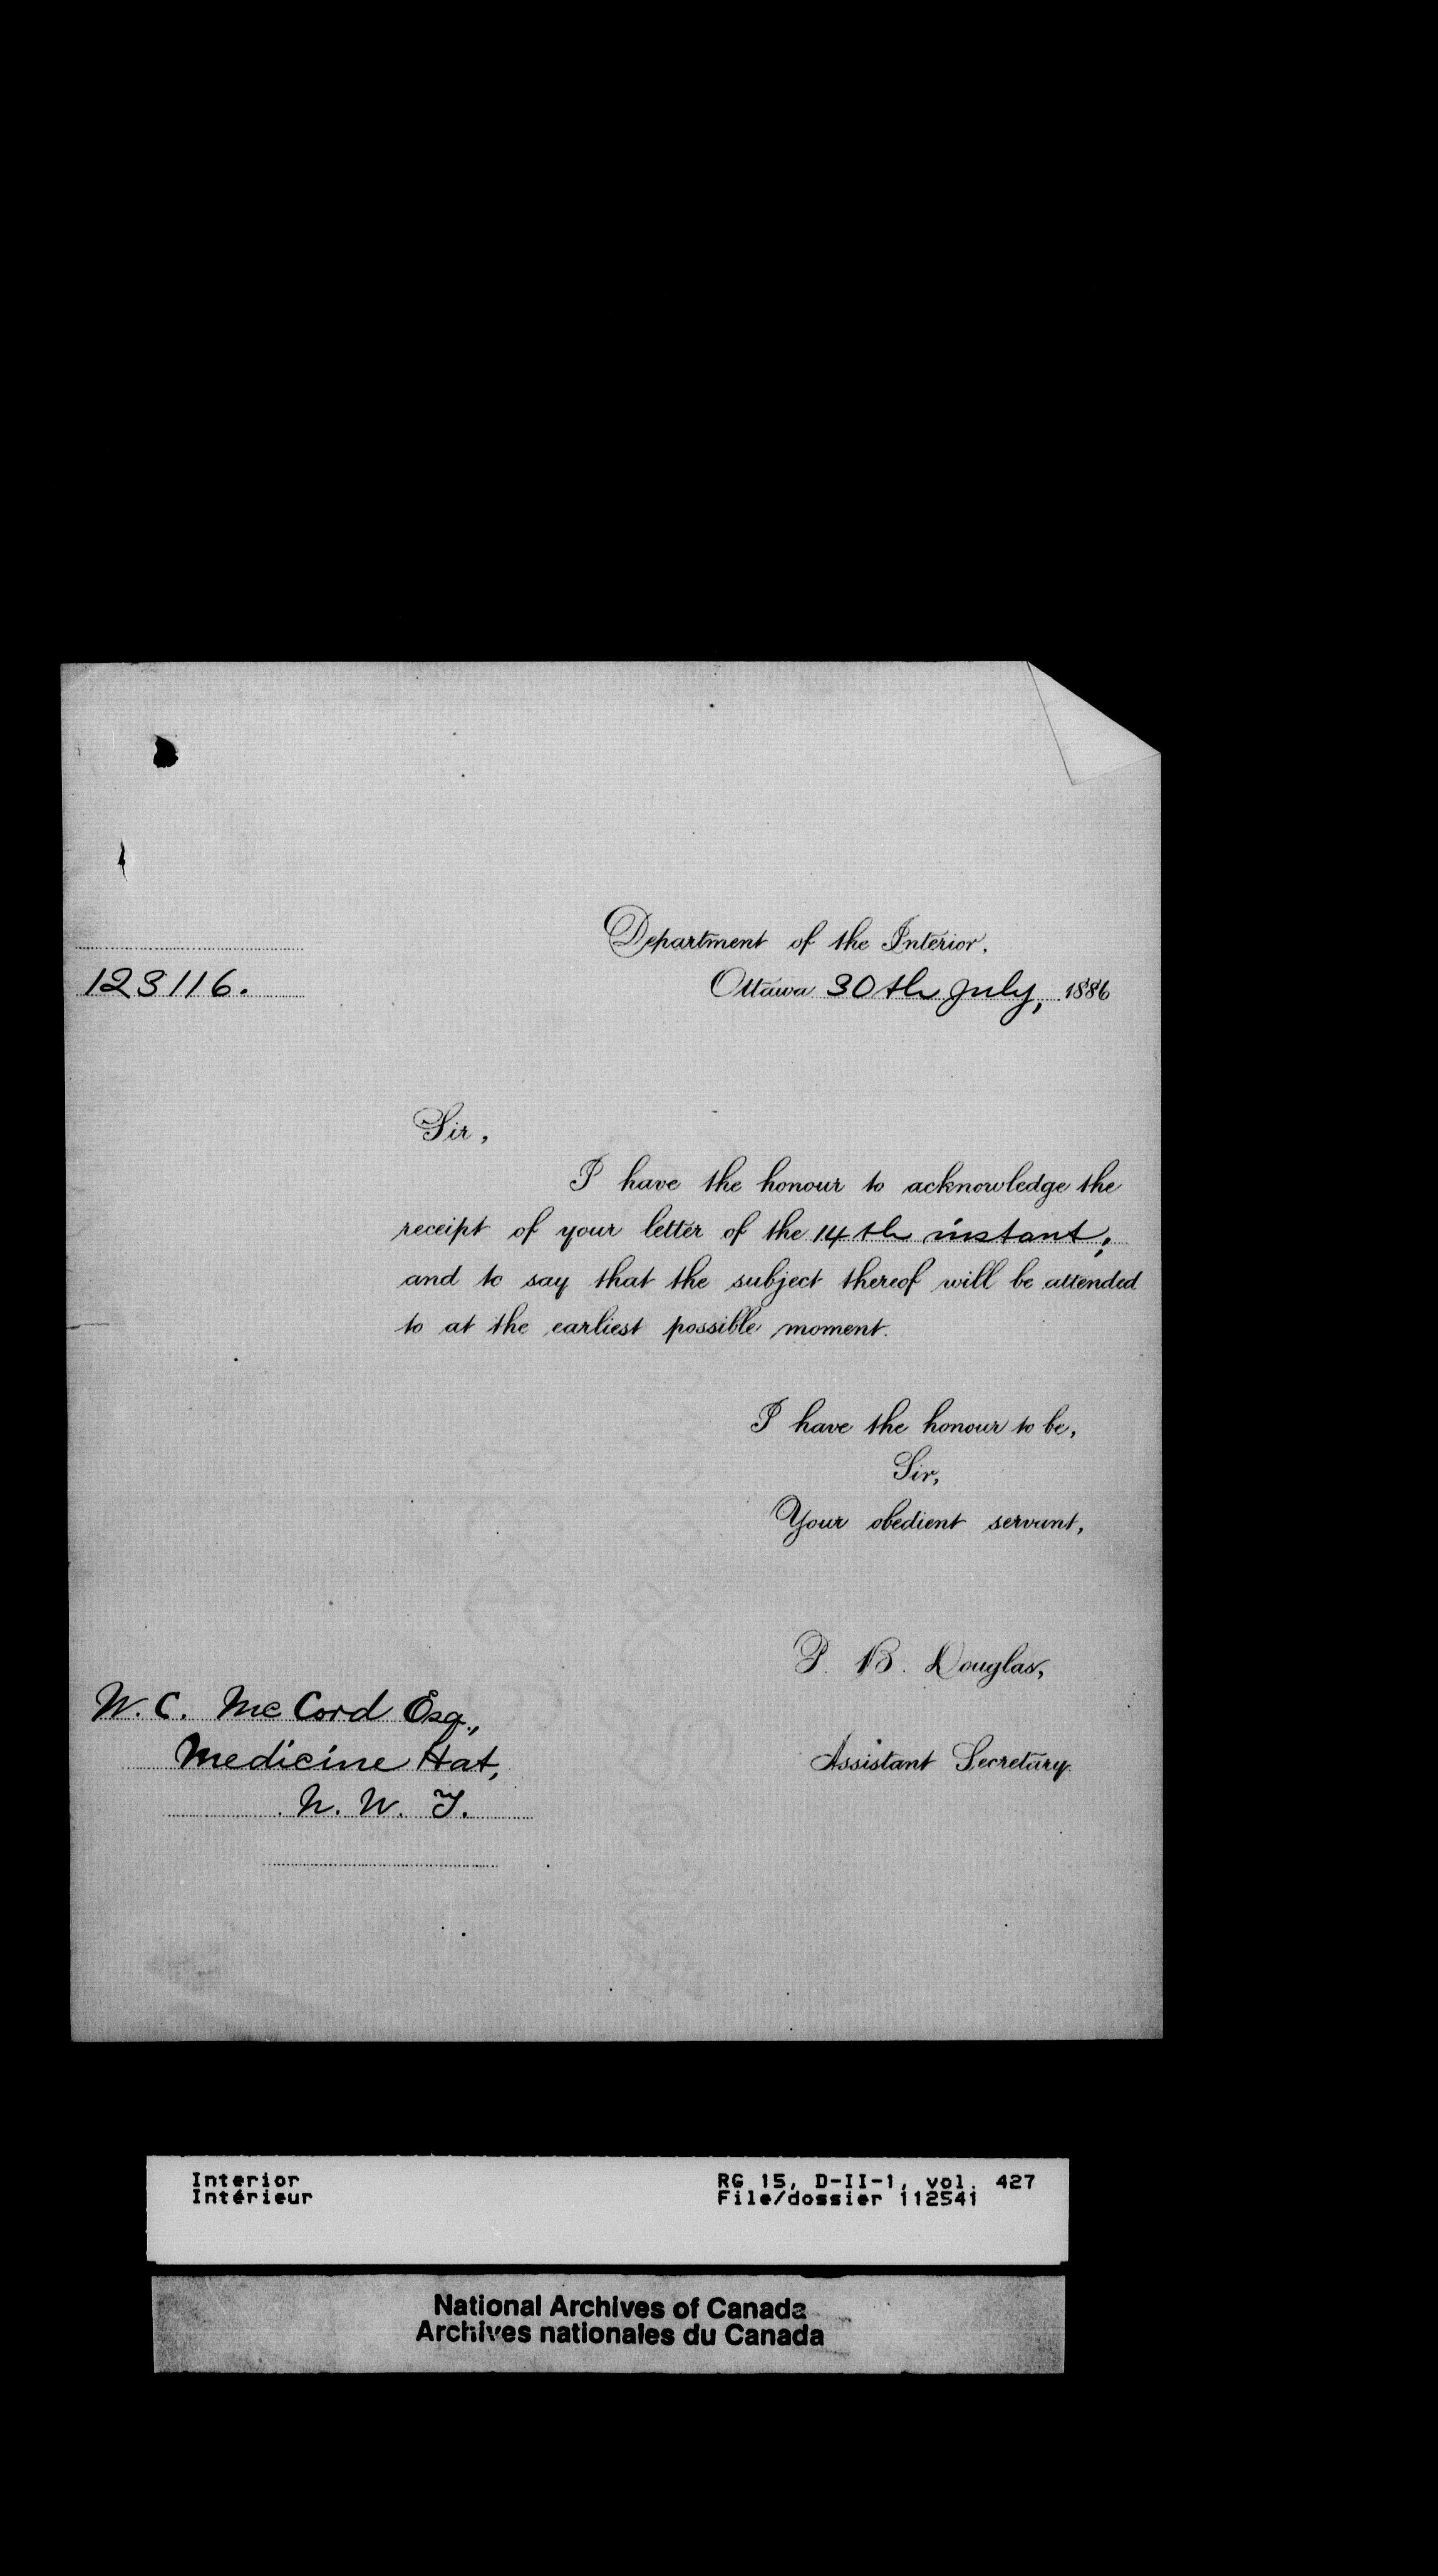 Department of the Interior,
123116.
Ottawa 30th July, 1886
Sir,
I have the honour to acknowledge the
receipt of your letter of the 14th instant,
and to say that the subject thereof will be attended
to at the earliest possible moment.
I have the honour to be,
Sir,
Your obedient servant,
P. B. Douglas,
Assistant Secretary.
W. C. McCord Esq.,
Medicine Hat,
N. W. T.
Interior
Intérieur
RG 15, D-II-1, vol. 427
File/dossier 112541
National Archives of Canada
Archives nationales du Canada